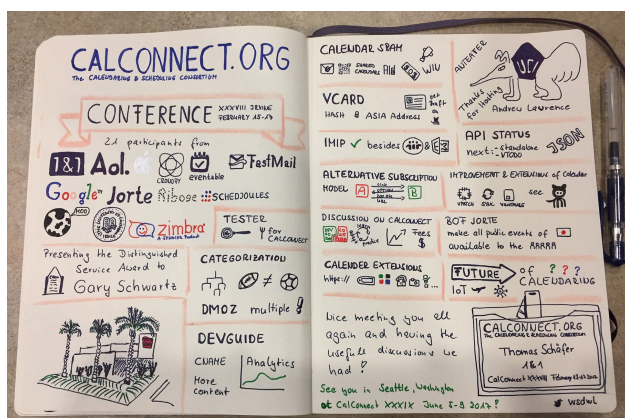 CALCONNECT.ORG
The CALENDARING & SCHEDULING CONSORTIUM
CONFERENCE XXXVIII IRVINE
FEBRUARY 15-17
21 participants from
1&1 Aol. CRONOFY eventable FastMail
Google Jorte Ribose SCHEDJOULES
MOO zimbra
A SYNACOR Product
TESTER
for CALCONNECT
Presenting the Distinguished
Service Award to
Gary Schwartz
CATEGORIZATION
DMOZ multiple
DEVGUIDE
CNAME
More
content
Analytics
CALENDAR SPAM
SHARED
CALENDARS
WIU
VCARD
HASH & ASIA Address
get
draft
on
IMIP ✓ besides &
ALTERNATIVE SUBSCRIPTION
MODEL A B
LINK
URL
DISCUSSION ON CALCONNECT
DEV
Fees
$
CALENDER EXTENSIONS
https://
Nice meeting you all
again and having the
usefull discussions we
had!
See you in Seattle, Washington
at CalConnect XXXIX June 5-9 2017!
ANTEATER
UCI
Thanks
for Hosting
Andrew Laurence
API STATUS
next: - Standalone
- VTODO
JSON
IMPROVEMENT & EXTENSIONS of Calender
VPATCH SYNC
see
BOT JORTE
make all public events of
available to the RRRRR
FUTURE of ? ? ?
CALENDARING
IoT
CALCONNECT.ORG
The CALENDARING & SCHEDULING CONSORTIUM
Thomas Schäfer
1&1
CalConnect XXXVIII February 13-17 2017
wsdwl